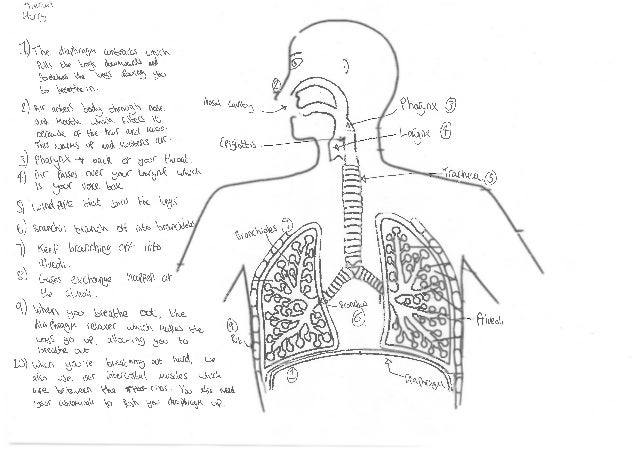 Harry
1) The diaphragm contracts which
pulls the lungs downwards and
stretches the lungs forcing you
to breathe in.
2) Air enters body through nose
and mouth which filters it
because of the hair and
This warms up and moistens air.
3) Pharynx → back of your throat.
4) Air passes over your larynx which
is your voice box
5) Windpipe that joins the lungs
6) Bronchi branch off into bronchioles
7) Keep branching off into
Alveoli.
8) Gases exchange happen at
the alveoli.
9) When you breathe out, the
diaphragm relaxes which makes the
lungs go up, allowing you to
breathe out
10) When you're breathing out hard, we
also use our intercostal muscles which
are between the ribs. You also need
your abdominals to push you diaphragm up.
2
Nasal cavity
Epiglottis
Pharynx 3
Larynx 4
Trachea 5
Bronchioles 7
Bronchus
6
Alveoli
Rib
1
Diaphragm